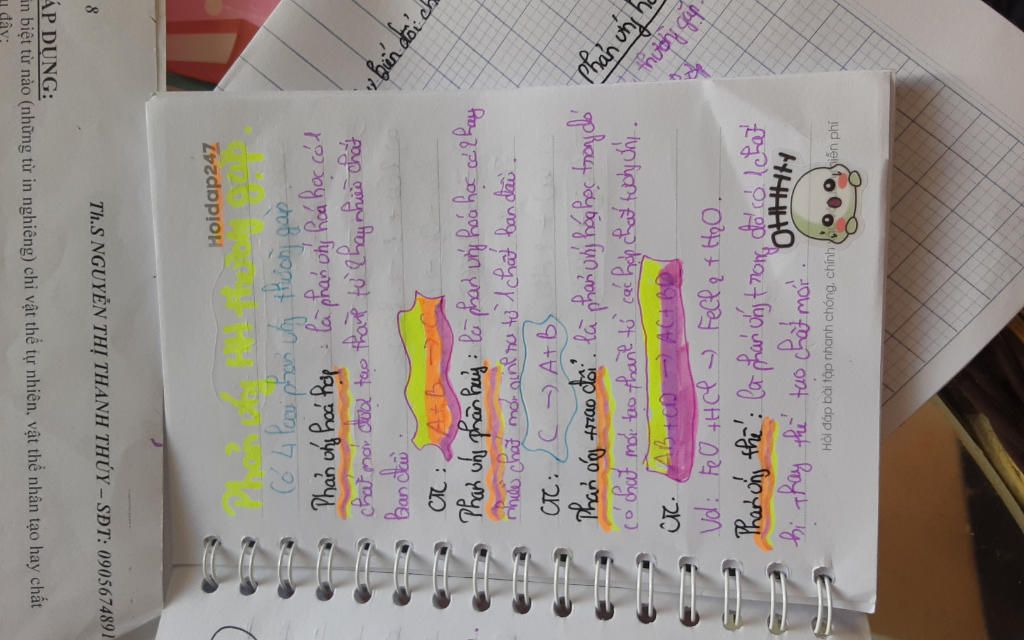 Hoidap247
Phản ứng HH thường gặp.
Có 4 loại phản ứng thường gặp
Phản ứng hoá hợp: là phản ứng hoá học có 1
chất mới được tạo thành từ 2 hay nhiều chất
ban đầu.
CTC: A+B → C
Phản ứng phân huỷ: là phản ứng hoá học có 2 hay
nhiều chất mới sinh ra từ 1 chất ban đầu.
CTC: C → A+B
Phản ứng trao đổi: là phản ứng hoá học trong đó
có chất mới tạo thành từ các hợp chất tương ứng.
CTC: AB+CD → AC+BD
Vd: FeO + HCl → FeCl₂ + H₂O.
Phản ứng thế: là phản ứng trong đó có 1 chất
bị thay thế tạo chất mới.
OHHHHH
Hỏi đáp bài tập nhanh chóng, chính miễn phí
8
ÁP DỤNG:
biệt từ nào (những từ in nghiêng) chỉ vật thể tự nhiên, vật thể nhân tạo hay chất
đây:
Th.S NGUYỄN THỊ THANH THỦY – SĐT: 090567489
biến đổi:
Phản ứng
thường gặp